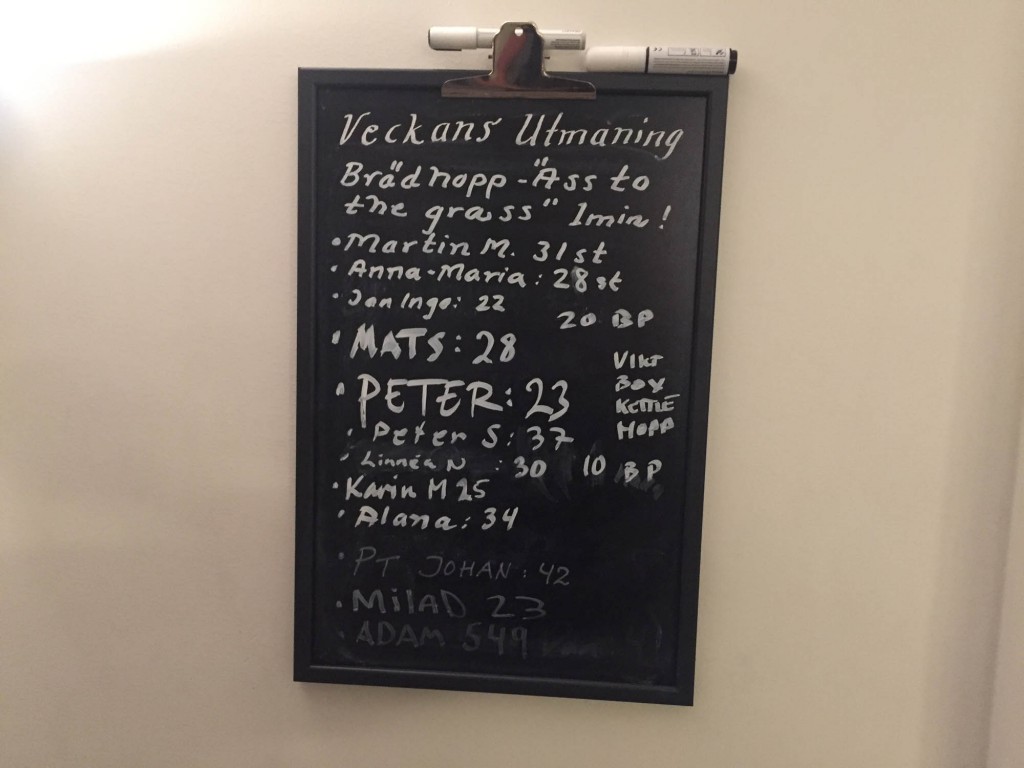 Veckans Utmaning
Brädhopp - "Ass to
the grass" 1min!
• Martin M. 31st
• Anna-Maria: 28st
• Jan Inge: 22
20 BP
• MATS: 28
VIKT
BOX
KETTLE
HOPP
• PETER: 23
• Peter S: 37
• Linnéa N : 30 10 BP
• Karin M 25
• Alana: 34
• PT JOHAN: 42
• MilAD 23
• ADAM 549